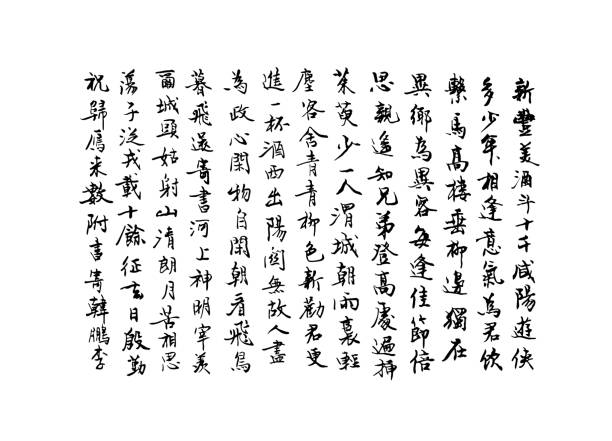 新豐美酒斗十千咸陽遊俠
多少年相逢意氣為君飲
繫馬高樓垂柳邊獨在
異鄉為異客每逢佳節倍
思親遙知兄弟登高處遍插
茱萸少一人渭城朝雨裛輕
塵客舍青青柳色新勸君更
進一杯酒西出陽關無故人盡
為政心閑物自閑朝看飛鳥
暮飛還寄書河上神明宰羨
爾城頭姑射山清朗月苦相思
蕩子從戎載十餘征去日殷勤
祝歸雁来數附書寄韓鵬李